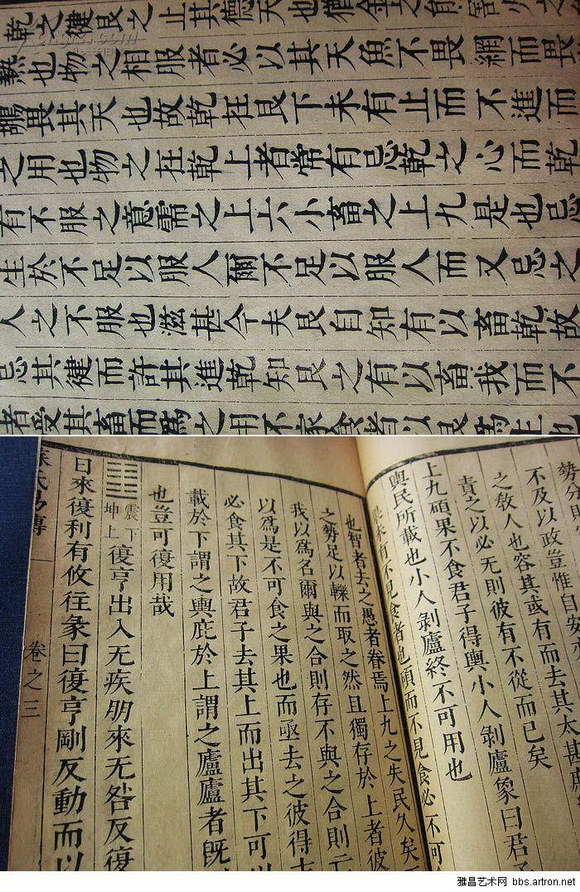 乾之徤艮之止其德天也猶金之能割
熱也物之相服者必以其天魚不畏網而畏
鶘畏其天也故乾在艮下未有止而不進而
之用也物之在乾上者常有忌乾之心而乾
有不服之意需之上六小畜之上九是也忌
生於不足以服人爾不足以服人而又忌之
人之不服也滋甚今夫艮自知有以畜乾故
忌其徤而許其進乾知艮之有以畜我而不
者受其畜而爲之用不家食者以艮爲上也
勢分則
不及以政豈惟自安
之敎人也容其或有而去其太甚
責之以必无則彼有不從而已矣
上九碩果不食君子得輿小人剥廬象曰君子
輿民所載也小人剥廬終不可用也
果未有不見食者也碩而不見食必不可
也智者去之愚者眷焉上九之失民久矣
之勢足以轢而取之然且獨存於上者彼
我以爲名爾與之合則存不與之合則
以爲是不可食之果也而亟去之彼得
必食其下故君子去其上而出其下可
載於下謂之輿庇於上謂之廬廬者既
也豈可復用哉
震下坤上 復亨出入无疾朋來无咎反復
日來復利有攸往彖曰復亨剛反動而以
蘇氏易傳 卷之三
雅昌艺术网 bbs.artron.net